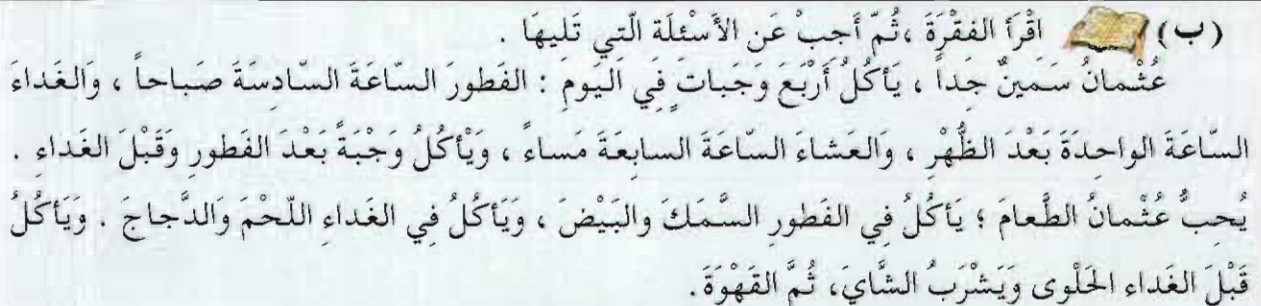 (ب) اقْرَأ الفقْرَةَ ،ثُمّ أَجِبْ عَن الأَسْئِلَة الّتِي تَليهَا .
عُثْمانُ سَمينٌ جَداً ، يَأكُلُ أَرْبَعَ وَجَباتٍ فِي اليَومَ : الفَطورَ السّاعَةَ السّادِسَةَ صَباحاً ، وَالغَداءَ
السّاعَةَ الواحِدَةَ بَعْدَ الظُّهْرِ ، وَالعَشاءَ السّاعَةَ السابِعَةَ مَساءً ، وَيْأكُلُ وَجْبَةً بَعْدَ الفَطورِ وَقَبْلَ الغَداءِ .
يُحِبُّ عُثْمانُ الطَّعامَ ؛ يَأكُلُ في الفَطورِ السَّمَكَ والبَيْضَ ، وَيَأكُلُ فِي الغَداءِ اللّحْمَ وَالدَّجاجَ . وَيَأكُلُ
قَبْلَ الغَداءِ الحَلْوى وَيَشْرَبُ الشّايَ، ثُمَّ القَهْوَةَ .